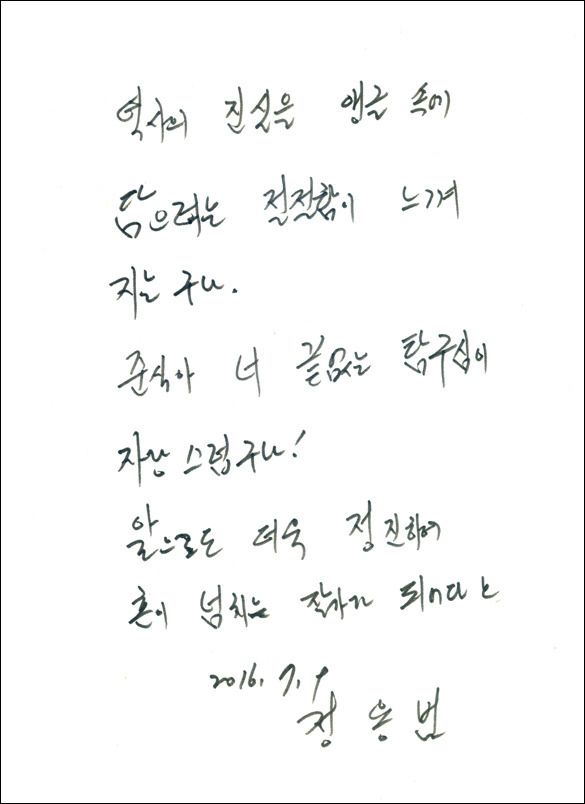 역사의 진실을 앵글 속에
담으려는 절절함이 느껴
지는 구나.
준식아 너 끝없는 탐구심이
자랑 스럽구나!
앞으로도 더욱 정진하여
혼이 넘치는 작가가 되어다오
2016. 7. 9
정 용 범